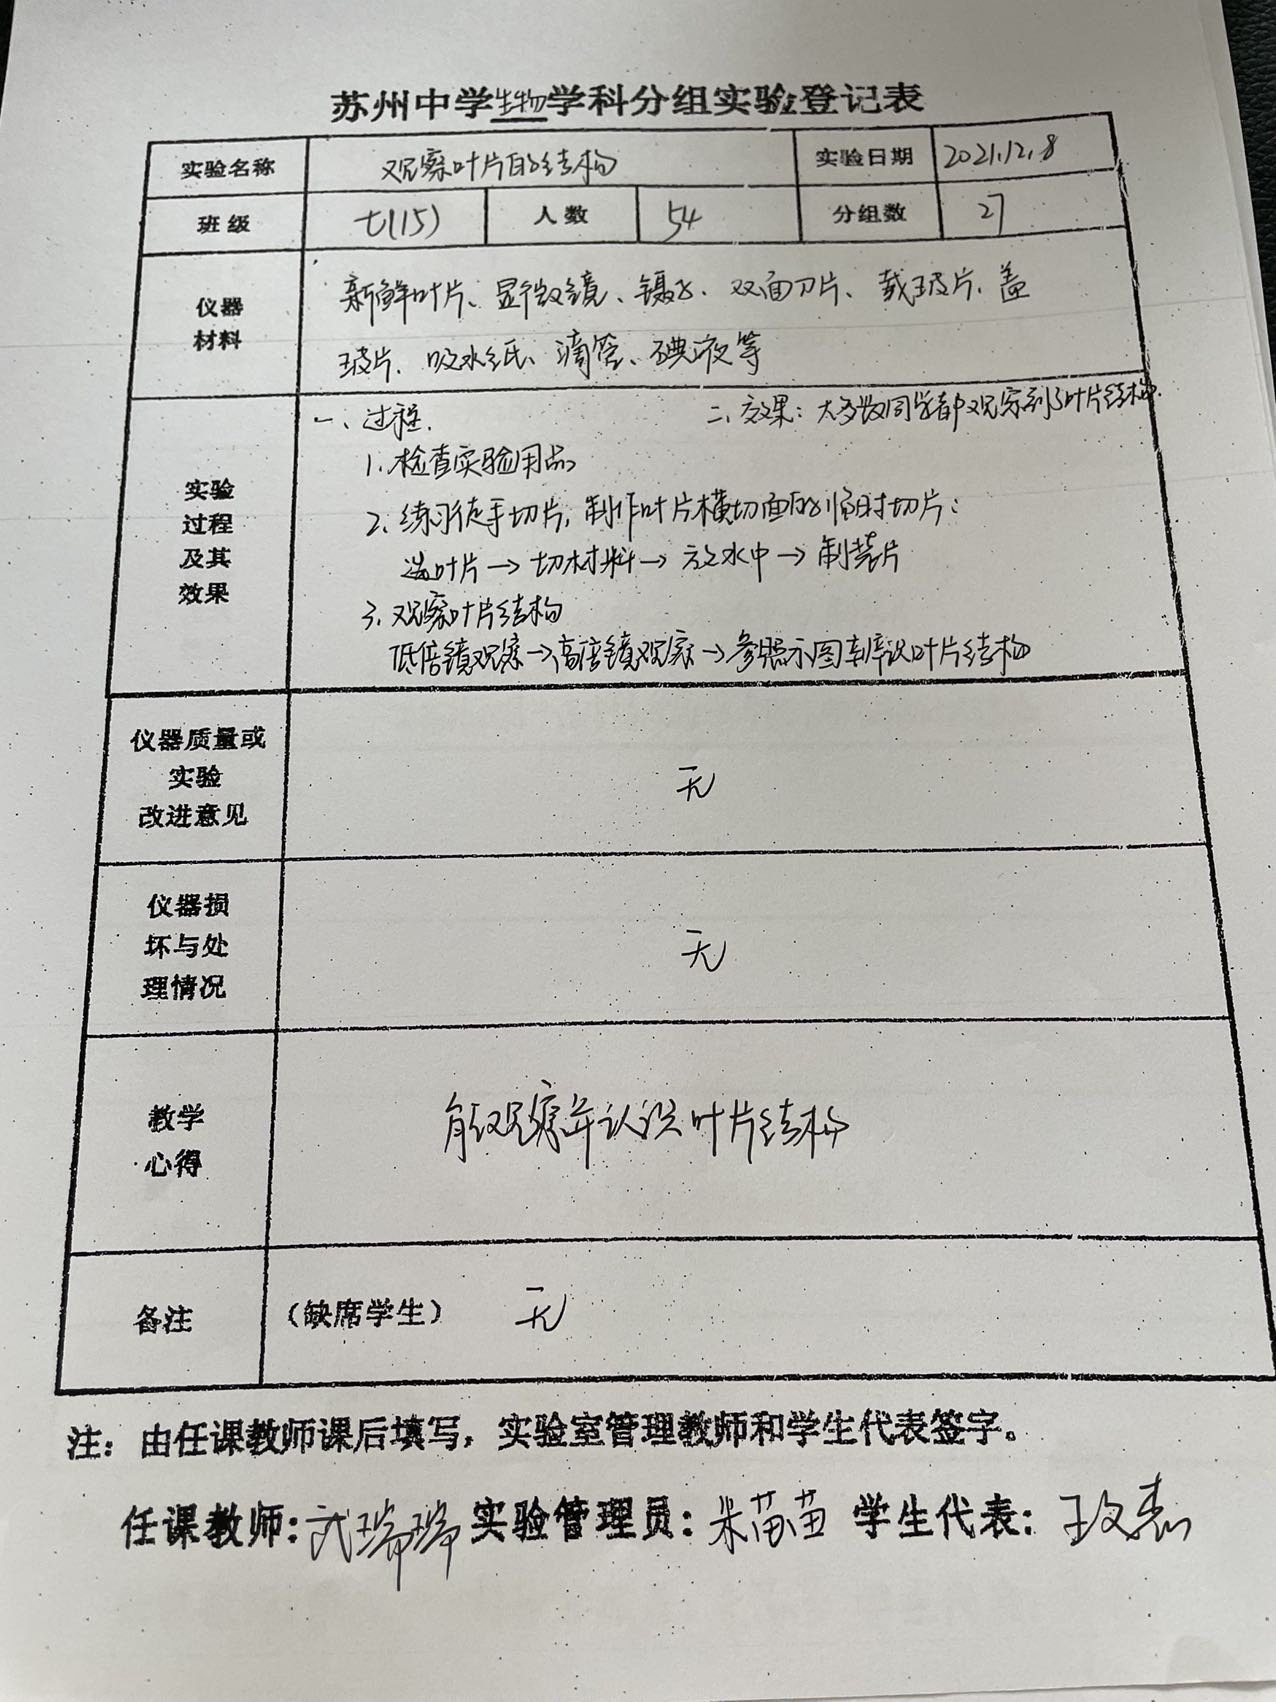 苏州中学生物学科分组实验登记表
实验名称 观察叶片的结构 实验日期 2021.12.8
班级 七(15) 人数 54 分组数 27
仪器
材料
新鲜叶片、显微镜、镊子、双面刀片、载玻片、盖
玻片、吸水纸、滴管、碘液等
实验
过程
及其
效果
一、过程.
二、效果：大多数同学都观察到了叶片结构.
1.检查实验用品
2.练习徒手切片，制作叶片横切面的临时切片：
选叶片→切材料→放水中→制装片
3.观察叶片结构
低倍镜观察→高倍镜观察→参照示图辨识叶片结构
仪器质量或
实验
改进意见
无
仪器损
坏与处
理情况
无
教学
心得
能观察并认识叶片结构
备注 (缺席学生) 无
注：由任课教师课后填写，实验室管理教师和学生代表签字。
任课教师：武瑞瑞 实验管理员：米苗苗 学生代表：